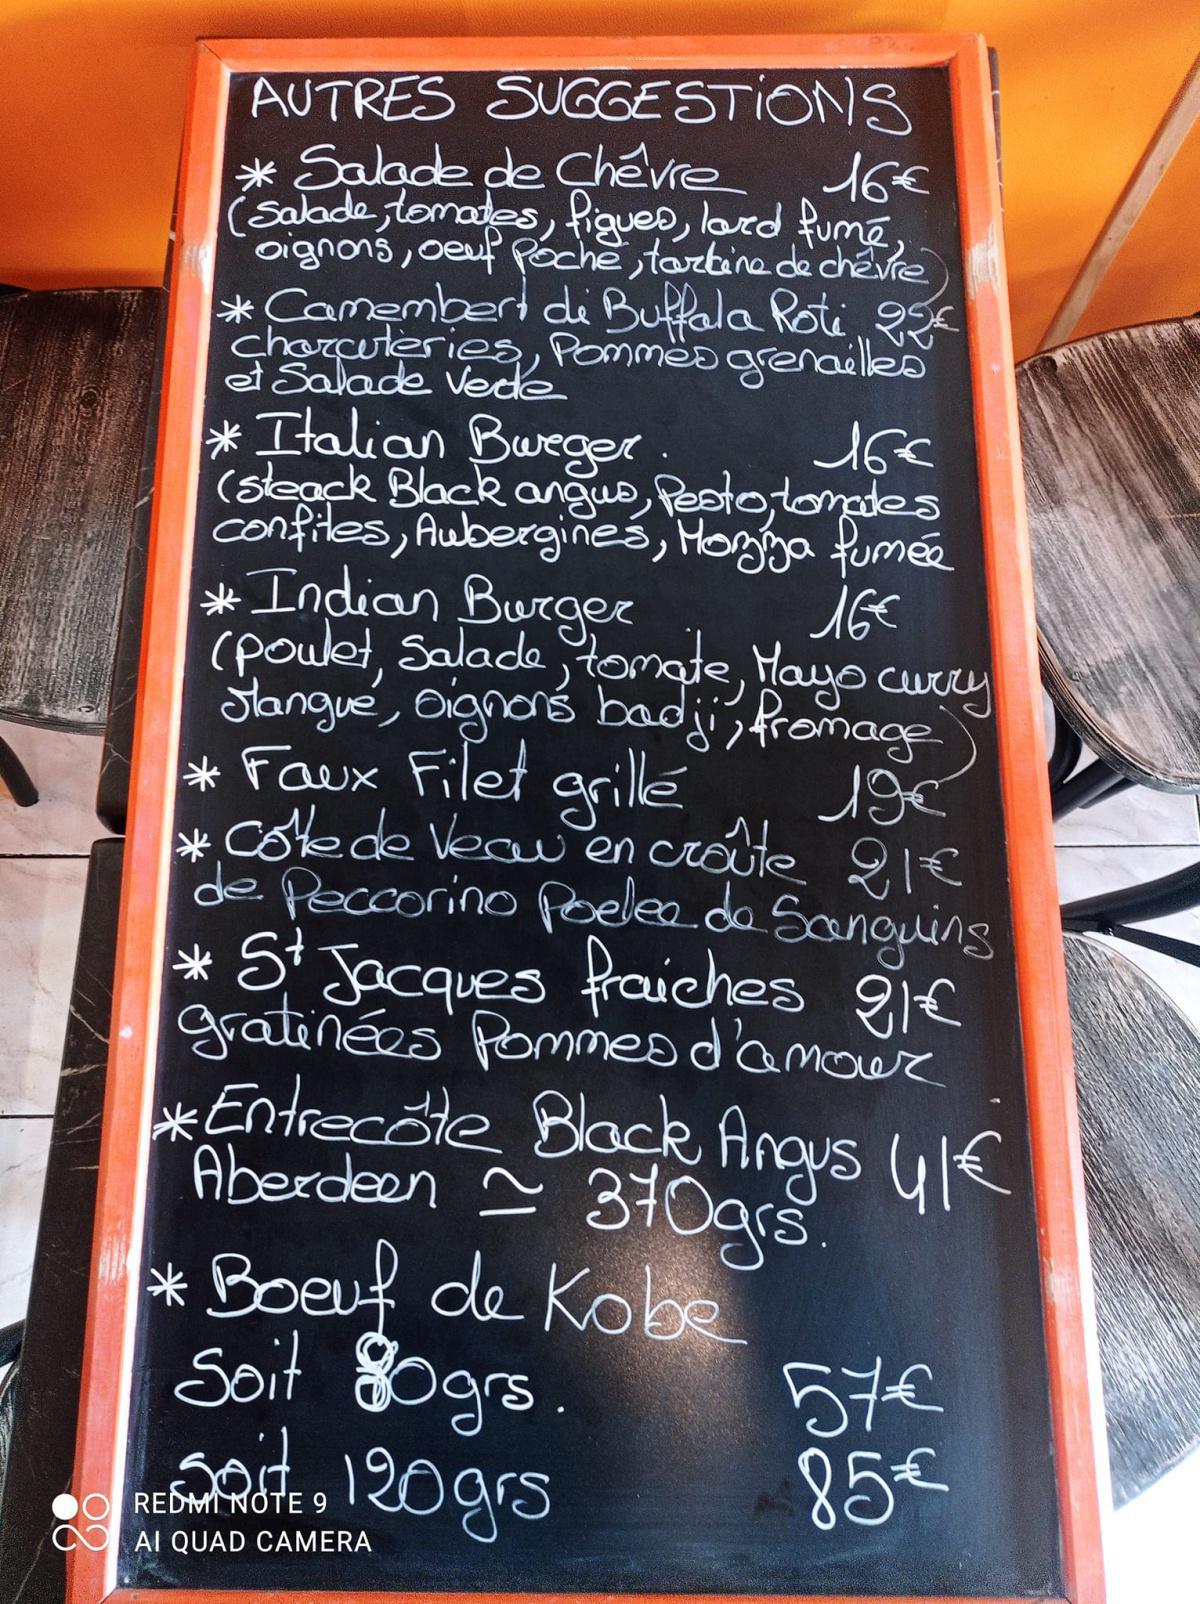 AUTRES SUGGESTIONS
* Salade de Chêvre 16€
(Salade, tomates, figues, lard fumé,
oignons, oeuf Poché, tartine de chêvre)
* Camembert di Buffala Roti 22€
charcuteries, Pommes grenailles
et Salade Verte
* Italian Burger. 16€
(steack Black angus, Pesto, tomates
confites, Aubergines, Mozza fumée
* Indian Burger 16€
(Poulet, Salade, tomate, Mayo curry
Mangue, oignons badji, fromage)
* Faux Filet grillé 19€
* Côte de Veau en croûte 21€
de Peccorino Poelee de Sanguins
* St Jacques fraiches 21€
gratinées Pommes d'amour
* Entrecôte Black Angus 41€
Aberdeen ≃ 370grs.
* Boeuf de Kobe
Soit 80grs. 57€
Soit 120grs 85€
REDMI NOTE 9
AI QUAD CAMERA